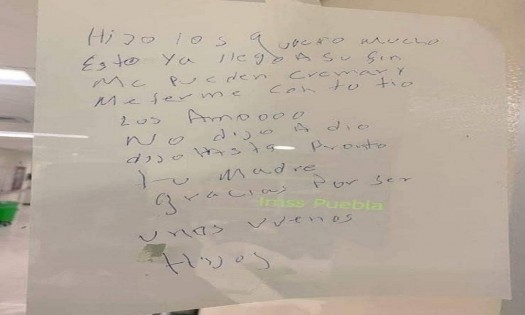 Hijo los quiero mucho
Esto ya llego a su fin
Me pueden cremar y
Meterme con tu tio
Los Amoooo
No digo A dio
digo HAsta Pronto
tu Madre
gracias por ser
Imss Puebla
unos vuenos
Hijos